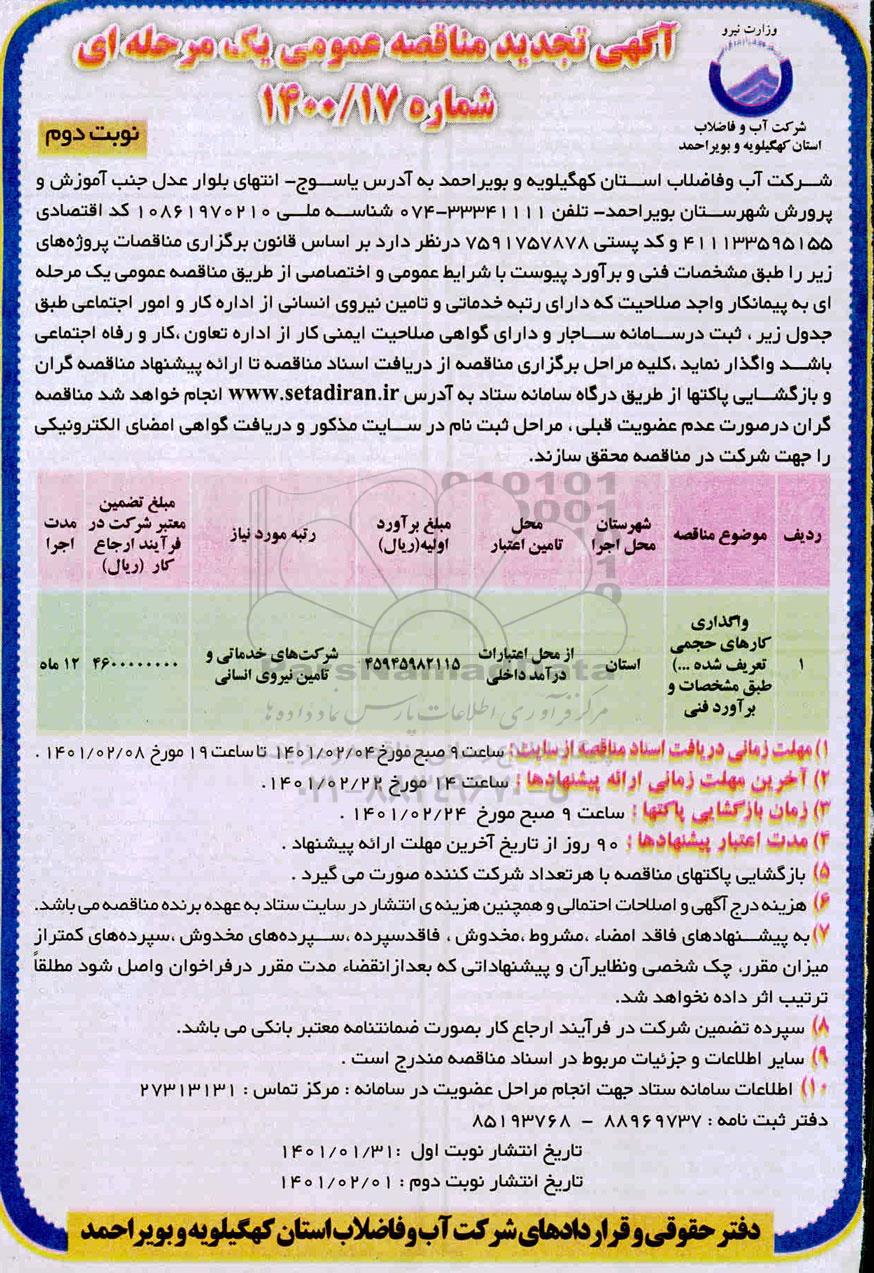 وزارت نیرو
شرکت آب و فاضلاب
استان کهگیلویه و بویراحمد
آگهی تجدید مناقصه عمومی یک مرحله ای
شماره ۱۴۰۰/۱۷
نوبت دوم
شرکت آب وفاضلاب استان کهگیلویه و بویراحمد به آدرس یاسوج- انتهای بلوار عدل جنب آموزش و
پرورش شهرستان بویراحمد- تلفن ۳۳۳۴۱۱۱۱-۰۷۴ شناسه ملی ۱۰۸۶۱۹۷۰۲۱۰ کد اقتصادی
۴۱۱۱۳۳۵۹۵۱۵۵ و کد پستی ۷۵۹۱۷۵۷۸۷۸ درنظر دارد بر اساس قانون برگزاری مناقصات پروژه‌های
زیر را طبق مشخصات فنی و برآورد پیوست با شرایط عمومی و اختصاصی از طریق مناقصه عمومی یک مرحله
ای به پیمانکار واجد صلاحیت که دارای رتبه خدماتی و تامین نیروی انسانی از اداره کار و امور اجتماعی طبق
جدول زیر ، ثبت درسامانه ساجار و دارای گواهی صلاحیت ایمنی کار از اداره تعاون ،کار و رفاه اجتماعی
باشد واگذار نماید ،کلیه مراحل برگزاری مناقصه از دریافت اسناد مناقصه تا ارائه پیشنهاد مناقصه گران
و بازگشایی پاکتها از طریق درگاه سامانه ستاد به آدرس www.setadiran.ir انجام خواهد شد مناقصه
گران درصورت عدم عضویت قبلی ، مراحل ثبت نام در سایت مذکور و دریافت گواهی امضای الکترونیکی
را جهت شرکت در مناقصه محقق سازند.
ردیف
موضوع مناقصه
شهرستان
محل اجرا
محل
تامین اعتبار
مبلغ برآورد
اولیه(ریال)
رتبه مورد نیاز
مبلغ تضمین
معتبر شرکت در
فرآیند ارجاع
کار (ریال)
مدت
اجرا
۱
واگذاری
کارهای حجمی
تعریف شده ...)
طبق مشخصات و
برآورد فنی
استان
از محل اعتبارات
درآمد داخلی
۴۵۹۴۵۹۸۲۱۱۵
شرکت‌های خدماتی و
تامین نیروی انسانی
۴۶۰۰۰۰۰۰۰۰
۱۲ ماه
مرکز فرآوری اطلاعات پارس نماد داده ها
۱) مهلت زمانی دریافت اسناد مناقصه از سایت : ساعت ۹ صبح مورخ ۱۴۰۱/۰۲/۰۴ تا ساعت ۱۹ مورخ ۱۴۰۱/۰۲/۰۸ .
۲) آخرین مهلت زمانی ارائه پیشنهادها : ساعت ۱۴ مورخ ۱۴۰۱/۰۲/۲۲.
۳) زمان بازگشایی پاکتها : ساعت ۹ صبح مورخ ۱۴۰۱/۰۲/۲۴ .
۴) مدت اعتبار پیشنهادها : ۹۰ روز از تاریخ آخرین مهلت ارائه پیشنهاد .
۵) بازگشایی پاکتهای مناقصه با هرتعداد شرکت کننده صورت می گیرد .
۶) هزینه درج آگهی و اصلاحات احتمالی و همچنین هزینه ی انتشار در سایت ستاد به عهده برنده مناقصه می باشد.
۷) به پیشنهادهای فاقد امضاء ،مشروط ،مخدوش ، فاقدسپرده ،سپرده‌های مخدوش ،سپرده‌های کمتراز
میزان مقرر، چک شخصی ونظایرآن و پیشنهاداتی که بعدازانقضاء مدت مقرر درفراخوان واصل شود مطلقاً
ترتیب اثر داده نخواهد شد.
۸) سپرده تضمین شرکت در فرآیند ارجاع کار بصورت ضمانتنامه معتبر بانکی می باشد.
۹) سایر اطلاعات و جزئیات مربوط در اسناد مناقصه مندرج است .
۱۰) اطلاعات سامانه ستاد جهت انجام مراحل عضویت در سامانه : مرکز تماس : ۲۷۳۱۳۱۳۱
دفتر ثبت نامه : ۸۸۹۶۹۷۳۷ - ۸۵۱۹۳۷۶۸
تاریخ انتشار نوبت اول :۱۴۰۱/۰۱/۳۱
تاریخ انتشار نوبت دوم : ۱۴۰۱/۰۲/۰۱
دفتر حقوقی و قراردادهای شرکت آب و فاضلاب استان کهگیلویه و بویراحمد